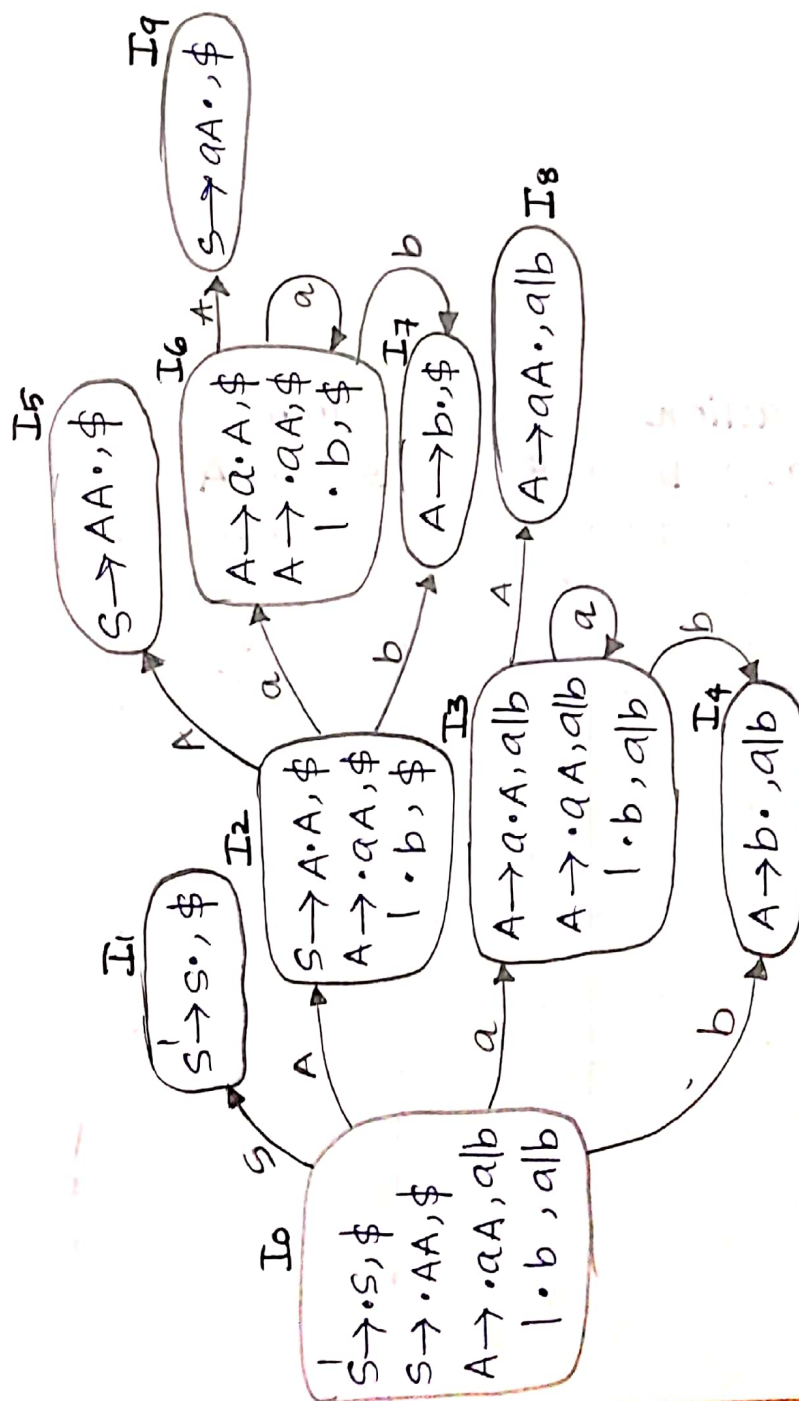 I0
S'→•S, $
S→•AA, $
A→•aA, a|b
|•b, a|b
S
A
a
b
I1
S'→S•, $
I2
S→A•A, $
A→•aA, $
|•b, $
A
a
b
I3
A→a•A, a|b
A→•aA, a|b
|•b, a|b
A
a
b
I4
A→b•, a|b
I5
S→AA•, $
I6
A→a•A, $
A→•aA, $
|•b, $
A
a
b
I7
A→b•, $
I8
A→aA•, a|b
I9
S→aA•, $